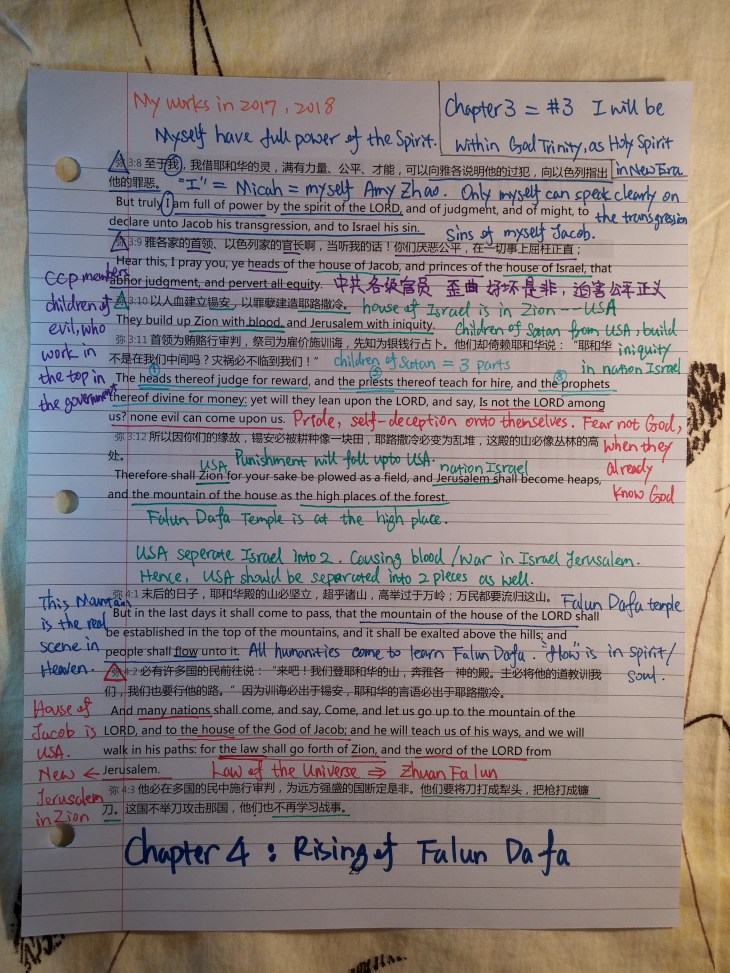 My works in 2017, 2018
Chapter 3 = #3 I will be
within God Trinity, as Holy Spirit
in New Era
Myself have full power of the Spirit.
弥 3:8 至于我，我借耶和华的灵，满有力量、公平、才能，可以向雅各说明他的过犯，向以色列指出
他的罪恶。
"I" = Micah = myself Amy Zhao. Only myself can speak clearly on
the transgression
But truly I am full of power by the spirit of the LORD, and of judgment, and of might, to
declare unto Jacob his transgression, and to Israel his sin.
Sins of myself Jacob.
弥 3:9 雅各家的首领、以色列家的官长啊，当听我的话！你们厌恶公平，在一切事上屈枉正直；
Hear this, I pray you, ye heads of the house of Jacob, and princes of the house of Israel, that
abhor judgment, and pervert all equity.
中共各级官员 歪曲好坏是非，迫害公平正义
CCP members
children of
evil, who
work in
the top in
the government
3:10 以人血建立锡安，以罪孽建造耶路撒冷。
house of Israel is in Zion -- USA
They build up Zion with blood, and Jerusalem with iniquity.
Children of Satan from USA, build
iniquity
in nation Israel
弥 3:11 首领为贿赂行审判，祭司为雇价施训诲，先知为银钱行占卜。他们却倚赖耶和华说："耶和华
不是在我们中间吗？灾祸必不临到我们！"
children of Satan = 3 parts
① ② ③
The heads thereof judge for reward, and the priests thereof teach for hire, and the prophets
thereof divine for money: yet will they lean upon the LORD, and say, Is not the LORD among
us? none evil can come upon us.
Pride, self-deception onto themselves. Fear not God,
when they
already
know God
弥 3:12 所以因你们的缘故，锡安必被耕种像一块田，耶路撒冷必变为乱堆，这殿的山必像丛林的高
处。
USA Punishment will fall upto USA. nation Israel
Therefore shall Zion for your sake be plowed as a field, and Jerusalem shall become heaps,
and the mountain of the house as the high places of the forest.
Falun Dafa Temple is at the high place.
USA seperate Israel into 2. Causing blood/war in Israel Jerusalem.
Hence, USA should be separated into 2 pieces as well.
弥 4:1 末后的日子，耶和华殿的山必坚立，超乎诸山，高举过于万岭；万民都要流归这山。
Falun Dafa temple
This Mountain
is the real
scene in
Heaven.
But in the last days it shall come to pass, that the mountain of the house of the LORD shall
be established in the top of the mountains, and it shall be exalted above the hills; and
people shall flow unto it.
All humanities come to learn Falun Dafa. "flow" is in spirit/
soul.
弥 4:2 必有许多国的民前往说："来吧！我们登耶和华的山，奔雅各　神的殿。主必将他的道教训我
们，我们也要行他的路。"因为训诲必出于锡安，耶和华的言语必出于耶路撒冷。
And many nations shall come, and say, Come, and let us go up to the mountain of the
LORD, and to the house of the God of Jacob; and he will teach us of his ways, and we will
walk in his paths: for the law shall go forth of Zion, and the word of the LORD from
Jerusalem.
Law of the Universe ⇒ Zhuan Falun
House of
Jacob is
USA.
New ←
Jerusalem
in Zion
弥 4:3 他必在多国的民中施行审判，为远方强盛的国断定是非。他们要将刀打成犁头，把枪打成镰
刀。这国不举刀攻击那国，他们也不再学习战事。
Chapter 4 : Rising of Falun Dafa